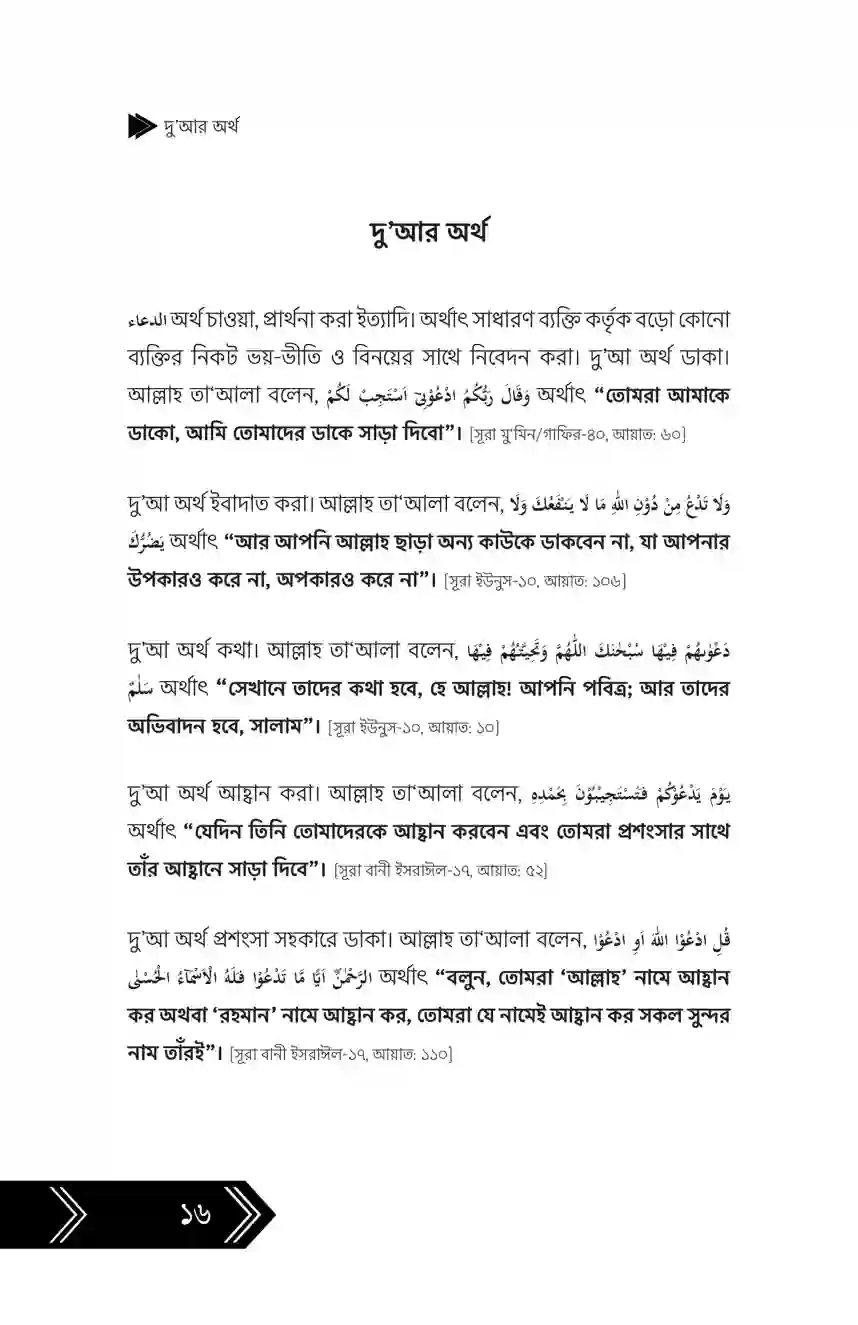 দু’আর অর্থ
দু’আর অর্থ
الدعاء অর্থ চাওয়া, প্রার্থনা করা ইত্যাদি। অর্থাৎ সাধারণ ব্যক্তি কর্তৃক বড়ো কোনো
ব্যক্তির নিকট ভয়-ভীতি ও বিনয়ের সাথে নিবেদন করা। দু’আ অর্থ ডাকা।
আল্লাহ তা‘আলা বলেন, وَقَالَ رَبُّكُمُ ادْعُوْنِيْٓ اَسْتَجِبْ لَكُمْ অর্থাৎ “তোমরা আমাকে
ডাকো, আমি তোমাদের ডাকে সাড়া দিবো”। [সূরা মু‘মিন/গাফির-৪০, আয়াত: ৬০]
দু’আ অর্থ ইবাদাত করা। আল্লাহ তা‘আলা বলেন, وَلَا تَدْعُ مِنْ دُوْنِ اللّٰهِ مَا لَا يَنْفَعُكَ وَلَا
يَضُرُّكَ অর্থাৎ “আর আপনি আল্লাহ ছাড়া অন্য কাউকে ডাকবেন না, যা আপনার
উপকারও করে না, অপকারও করে না”। [সূরা ইউনুস-১০, আয়াত: ১০৬]
দু’আ অর্থ কথা। আল্লাহ তা‘আলা বলেন, دَعْوٰىهُمْ فِيْهَا سُبْحٰنَكَ اللّٰهُمَّ وَتَحِيَّتُهُمْ فِيْهَا
سَلٰمٌ অর্থাৎ “সেখানে তাদের কথা হবে, হে আল্লাহ! আপনি পবিত্র; আর তাদের
অভিবাদন হবে, সালাম”। [সূরা ইউনুস-১০, আয়াত: ১০]
দু’আ অর্থ আহ্বান করা। আল্লাহ তা‘আলা বলেন, يَوْمَ يَدْعُوْكُمْ فَتَسْتَجِيْبُوْنَ بِحَمْدِهٖ
অর্থাৎ “যেদিন তিনি তোমাদেরকে আহ্বান করবেন এবং তোমরা প্রশংসার সাথে
তাঁর আহ্বানে সাড়া দিবে”। [সূরা বানী ইসরাঈল-১৭, আয়াত: ৫২]
দু’আ অর্থ প্রশংসা সহকারে ডাকা। আল্লাহ তা‘আলা বলেন, قُلِ ادْعُوا اللّٰهَ اَوِ ادْعُوْا
الرَّحْمٰنَ اَيًّا مَّا تَدْعُوْا فَلَهُ الْاَسْمَآءُ الْحُسْنٰى অর্থাৎ “বলুন, তোমরা ‘আল্লাহ’ নামে আহ্বান
কর অথবা ‘রহমান’ নামে আহ্বান কর, তোমরা যে নামেই আহ্বান কর সকল সুন্দর
নাম তাঁরই”। [সূরা বানী ইসরাঈল-১৭, আয়াত: ১১০]
১৬